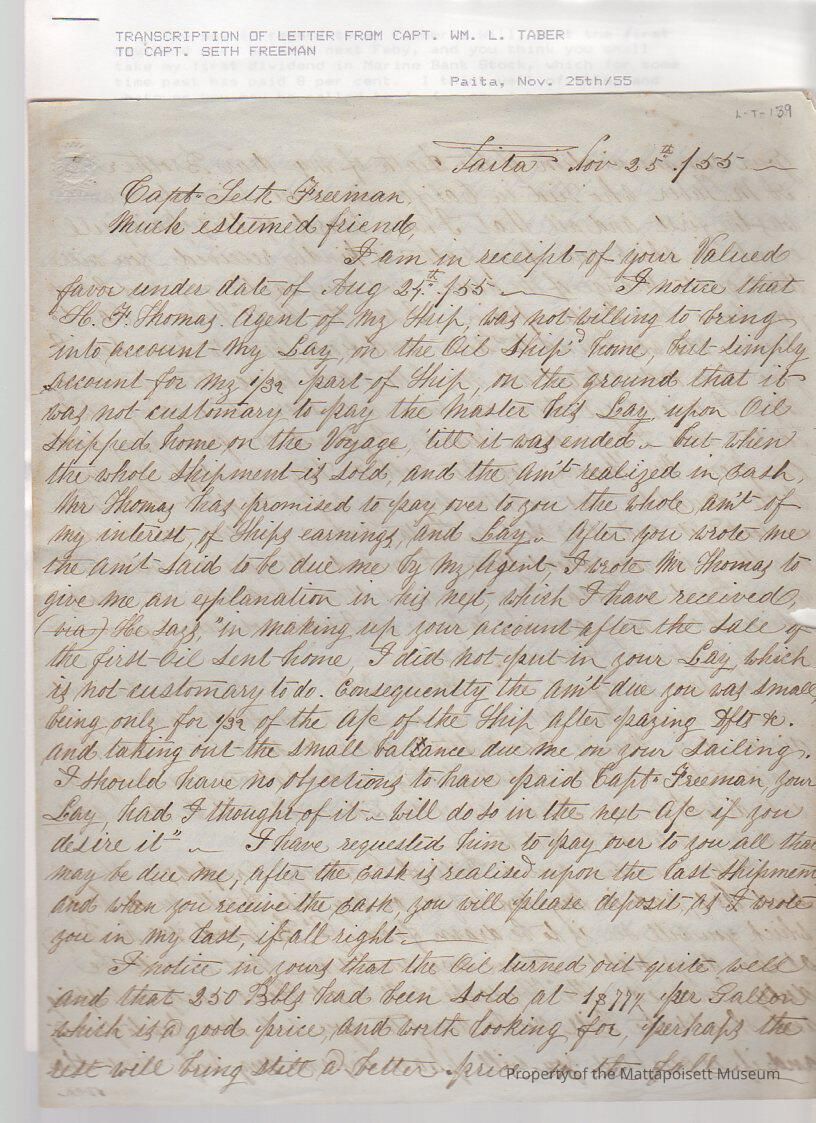 TRANSCRIPTION OF LETTER FROM CAPT. WM. L. TABER
TO CAPT. SETH FREEMAN
Paita, Nov. 25th/55
L-T-139
Paita Nov 25th /55
Capt. Seth Freeman
Much esteemed friend,
I am in receipt of your Valued
favor under date of Aug 24th /55 I notice that
H. F. Thomas. Agent of my Ship, was not willing to bring
into account my Lay, on the Oil Ship'd home, but simply
account for my 1/32 part of Ship, on the ground that it
was not customary to pay the Master his Lay upon Oil
shipped home on the Voyage, 'till it was ended - but when
the whole shipment is sold, and the am't realized in cash,
Mr Thomas has promised to pay over to you the whole am't of
my interest, of Ships earnings, and Lay. After you wrote me
the am't said to be due me by my Agent I wrote Mr Thomas to
give me an explanation in his next, which I have received,
(via) He says, "in making up your account after the sale of
the first Oil sent home, I did not put in your Lay, which
is not customary to do. Consequently the am't due you was small,
being only for 1/32 of the A/c of the Ship after paying Dfts &c.
and taking out the small ballance due me on your sailing.
I should have no objections to have paid Capt. Freeman, your
Lay, had I thought of it - will do so in the next A/c if you
desire it" - I have requested him to pay over to you all that
may be due me, after the cash is realised upon the last shipment
and when you receive the cash, you will please deposit as I wrote
you in my last, if all right.
I notice in yours that the Oil turned out quite well
and that 250 Bbls had been sold at 1$77¼ per Gallon
which is a good price, and worth looking for, perhaps the
rest will bring still a better price in the fall
Property of the Mattapoisett Museum